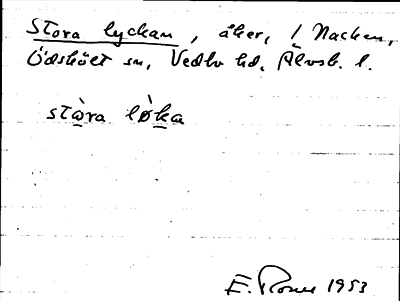 Stora lyckan, åker, 1 Nacken,
Ödskölt sn, Vedbo hd, Älvsb. l.
stàra lø̀ka
E. 1953